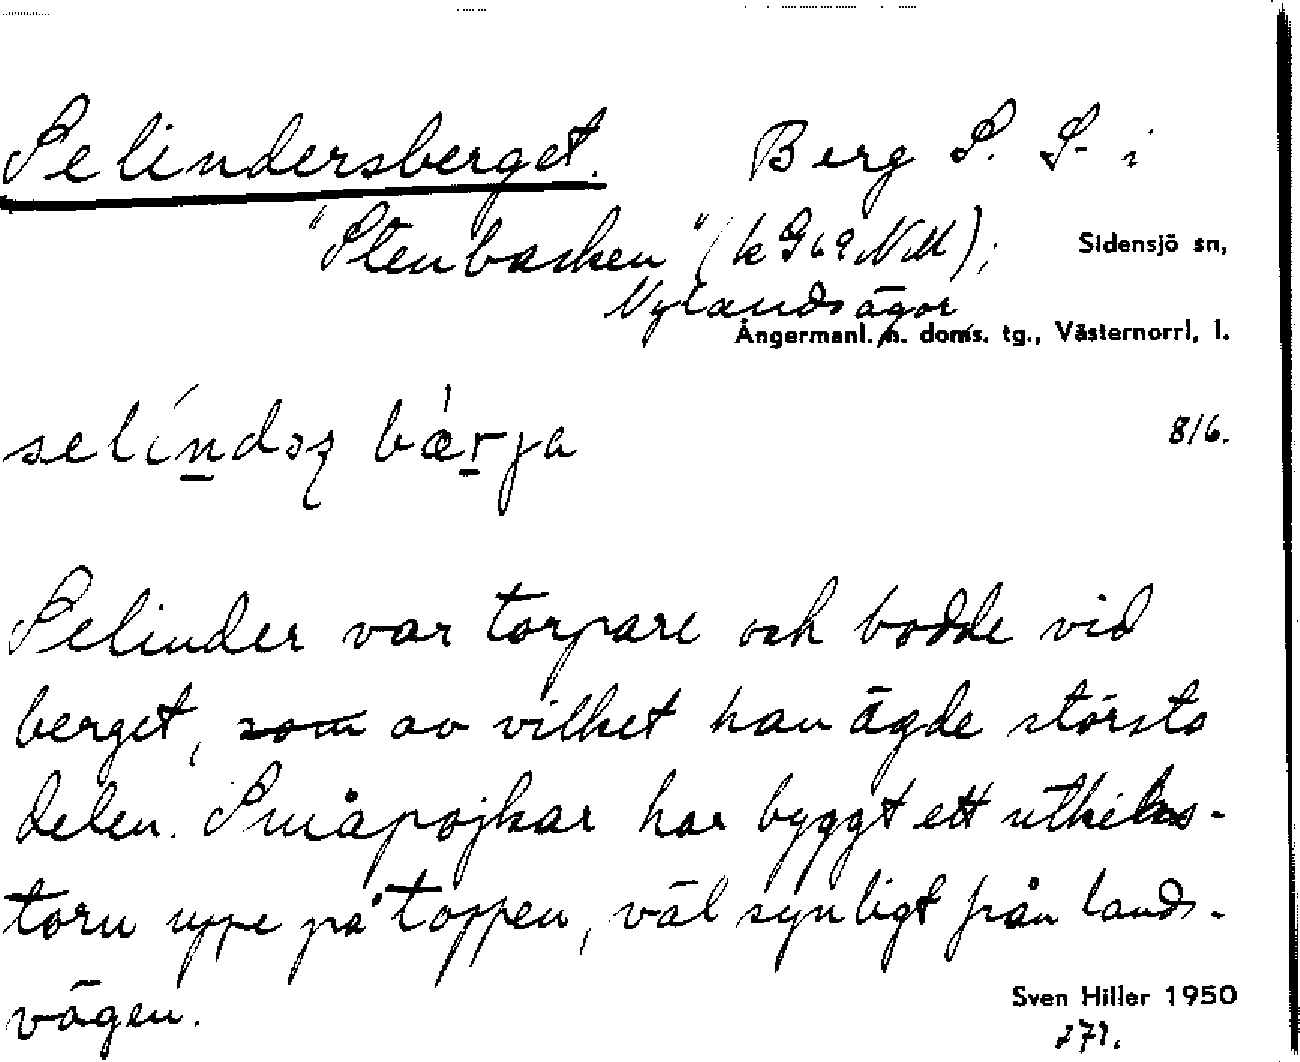 Selindersberget. Berg S. S. i
"Stenbacken" (k G 69 NM); Sidensjö sn,
Nylands ägor
Ångermanl. m. doms. tg., Västernorrl. l.
8/6.
Selinder var torpare och bodde vid
berget, som av vilket han ägde största
delen. Småpojkar har byggt ett utkiks-
torn uppe på toppen, väl synligt från lands-
vägen.
Sven Hiller 1950